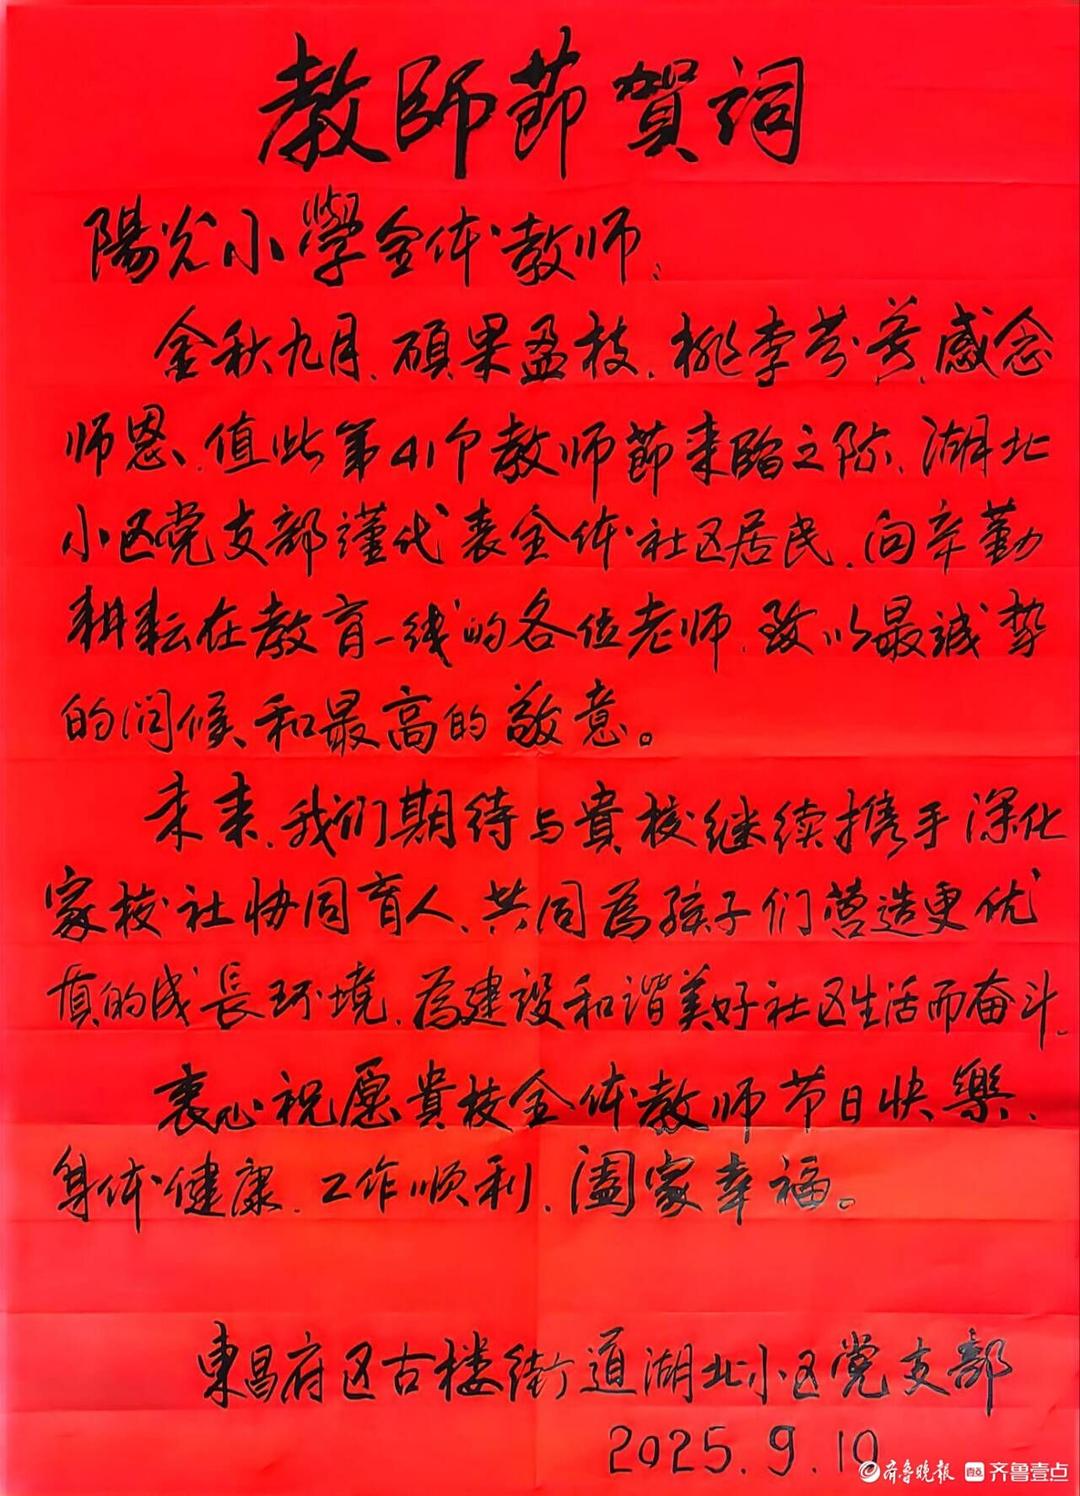 教師節賀詞
陽光小學全体教师：
金秋九月、碩果盈枝、桃李芬芳、感念
师恩、值此第41个教师節来臨之际、湖北
小区党支部謹代表全体社区居民、向辛勤
耕耘在教育一线的各位老师、致以最誠挚
的问候和最高的敬意。
未来、我们期待与貴校继续携手深化
家校社协同育人、共同為孩子们营造更优
质的成長环境、為建设和谐美好社区生活而奋斗、
衷心祝愿貴校全体教师节日快樂、
身体健康、工作顺利、阖家幸福。
東昌府区古楼街道湖北小区党支部
2025.9.10
齐鲁晚报 齐鲁壹点